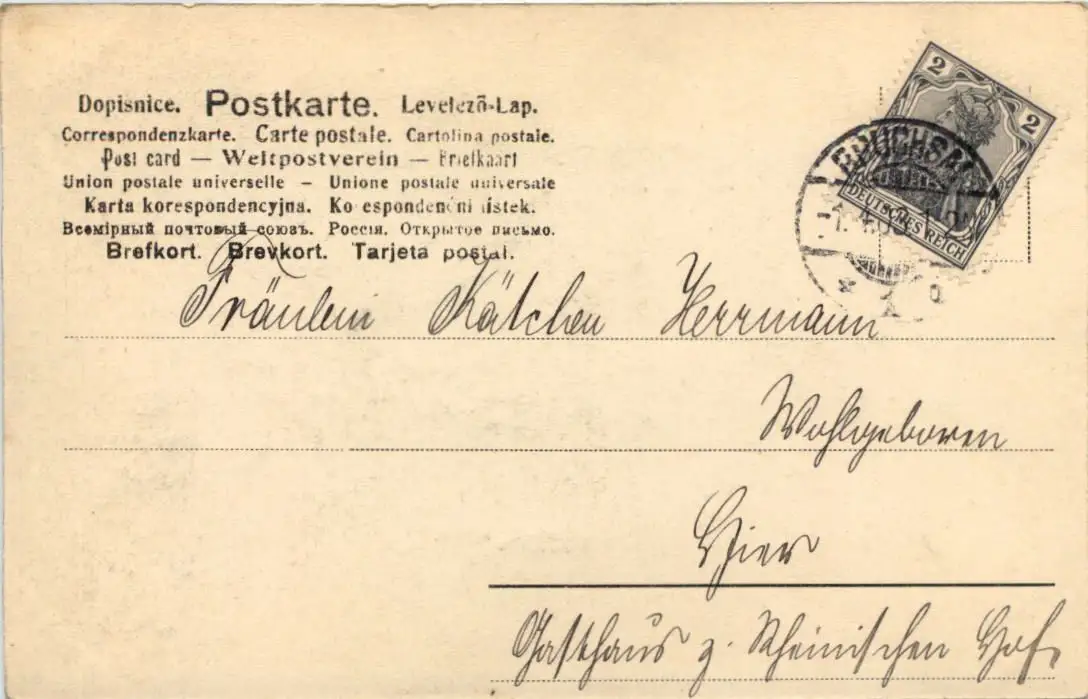 Dopisnice. Postkarte. Levelező-Lap.
Correspondenzkarte. Carte postale. Cartolina postale.
Post card — Weltpostverein — Briefkaart
Union postale universelle – Unione postale universale
Karta korespondencyjna. Ko espondenčni listek.
Всемірный почтовый союзъ. Россія. Открытое письмо.
Brefkort. Brevkort. Tarjeta postal.
2 2
DEUTSCHES REICH
BRUCHSAL
Fräulein Kätchen Herrmann
Wohlgeboren
Hier
Gasthaus z. Rheinischen Hof.